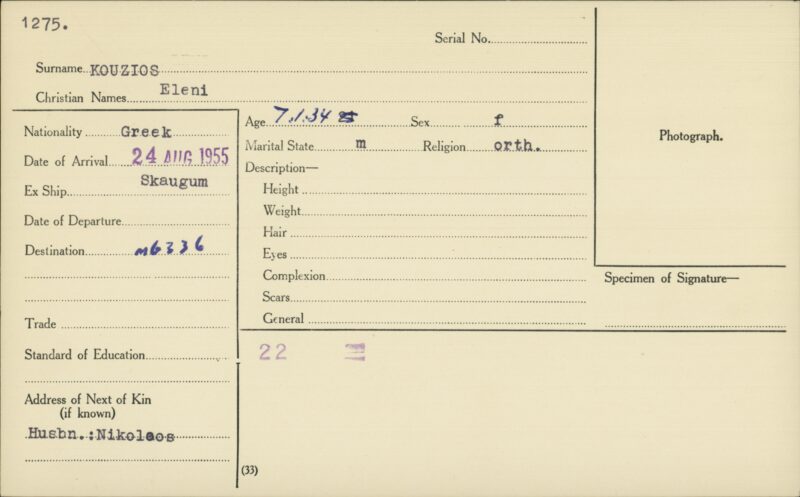 1275.
Serial No.
Surname KOUZIOS
Christian Names Eleni
Nationality Greek
Date of Arrival 24 AUG 1955
Ex Ship Skaugum
Date of Departure
Destination M6336
Trade
Standard of Education
Address of Next of Kin
(if known)
Husbn.:Nikolaos
Age 7.1.34 Sex f
Marital State m Religion orth.
Description—
Height
Weight
Hair
Eyes
Complexion
Scars
General
22
(33)
Photograph.
Specimen of Signature—